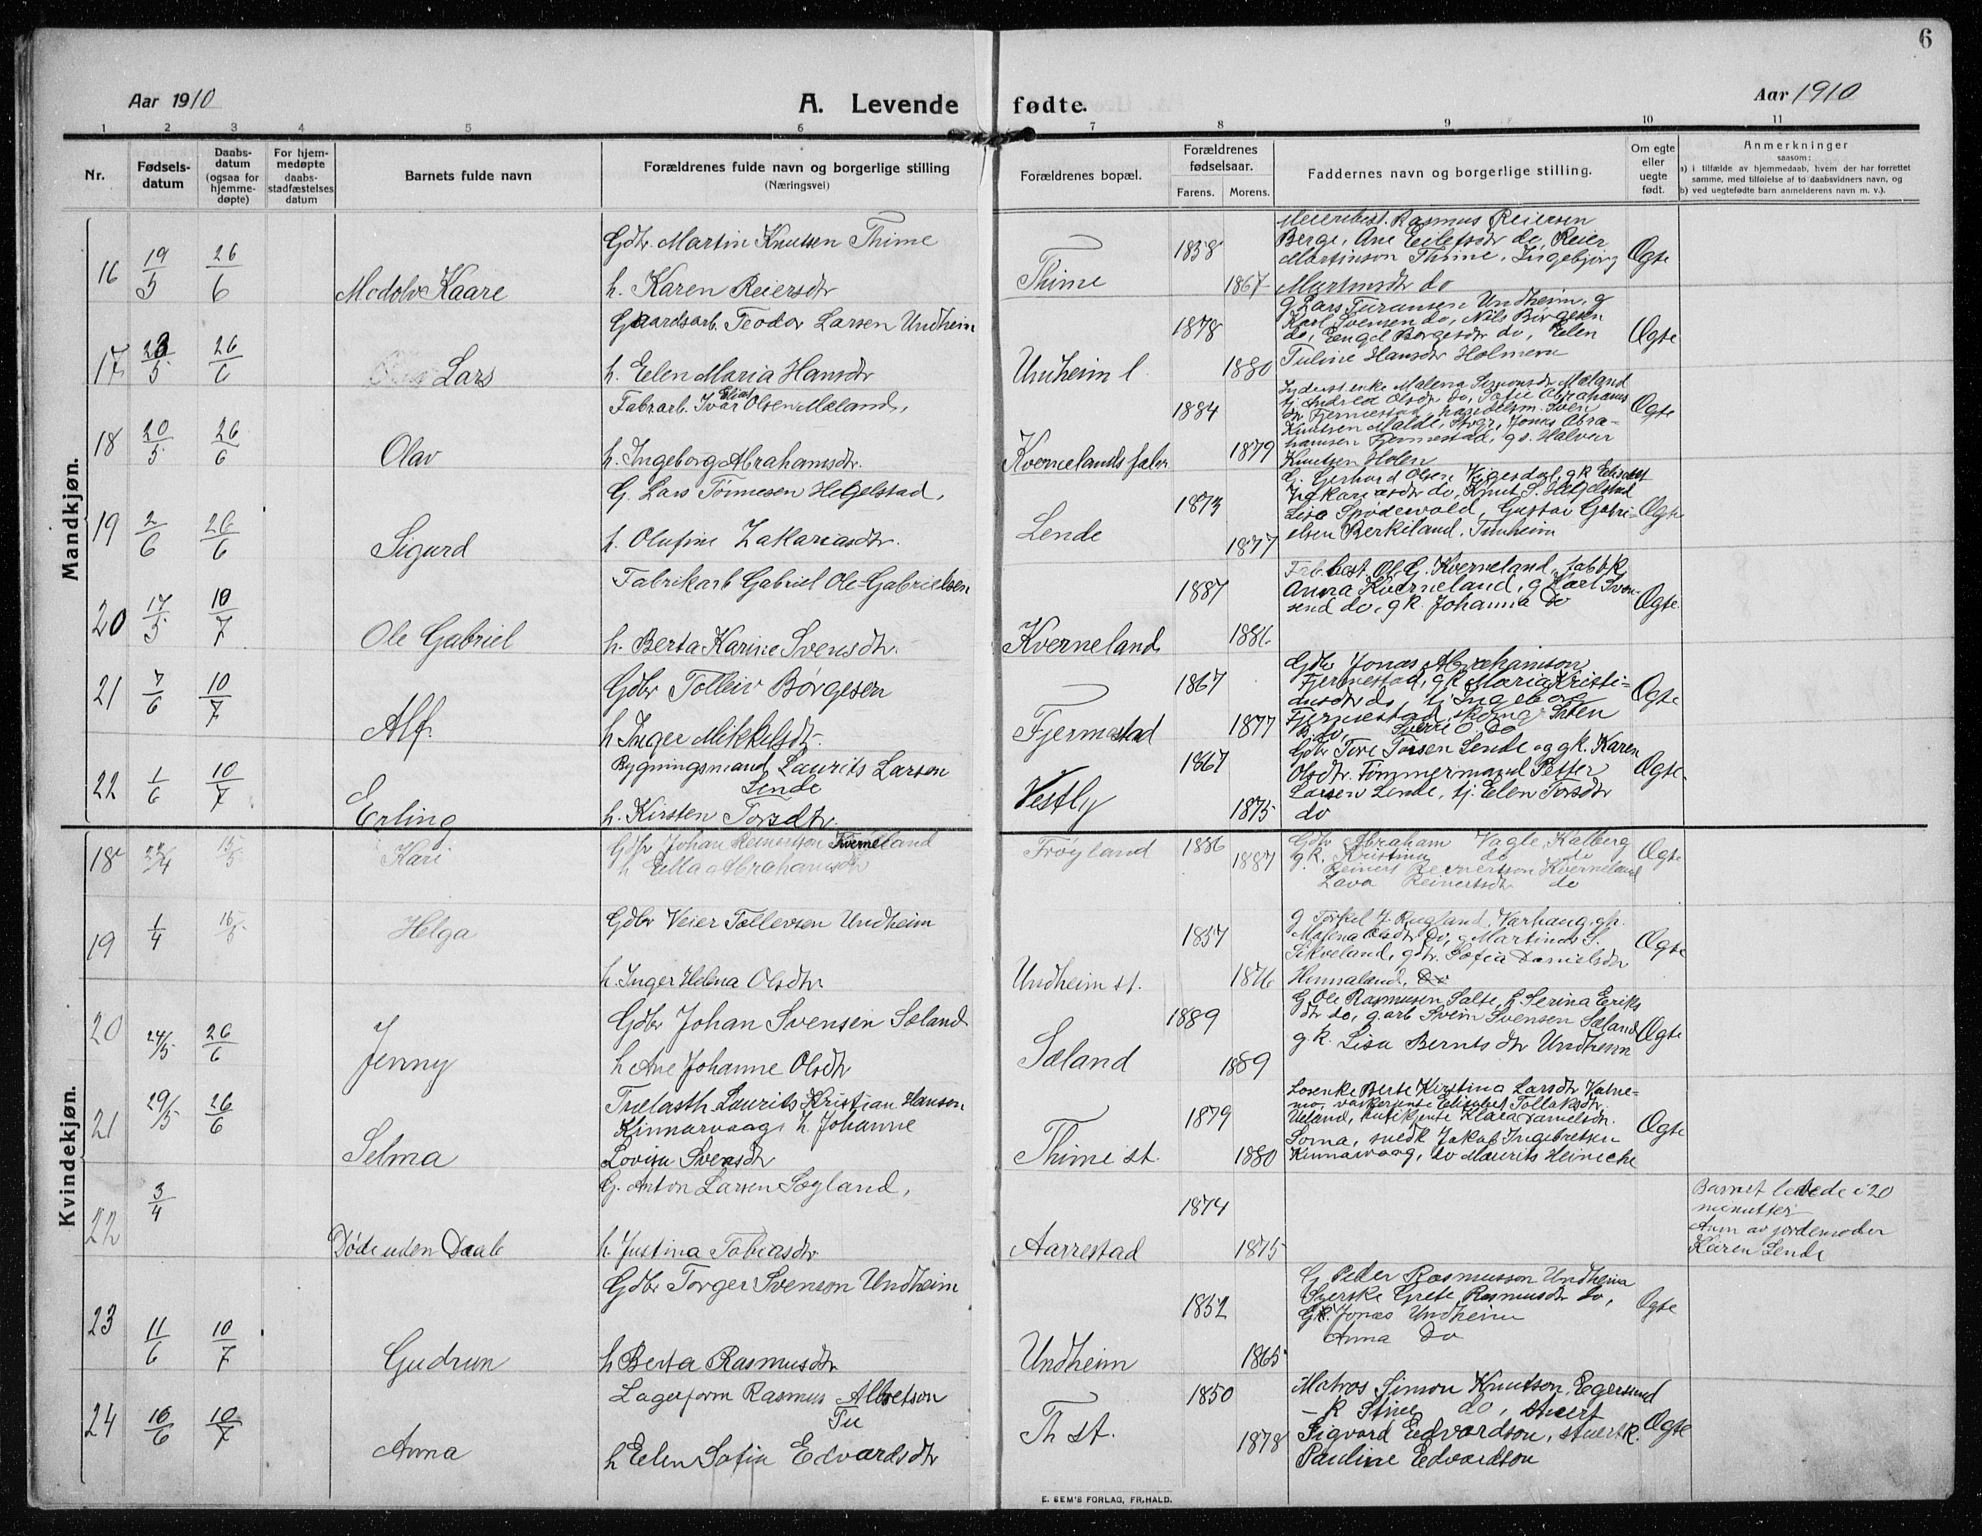 6
Aar 1910
A. Levende fødte.
Aar 1910
1 2 3 4 5 6 7 8 9 10 11
Nr.
Fødsels-
datum
Daabs-
datum
(ogsaa for
hjemme-
døpte)
For hjem-
medøpte
daabs-
stadfæstelses
datum
Barnets fulde navn
Forældrenes fulde navn og borgerlige stilling
(Næringsvei)
Forældrenes bopæl.
Forældrenes
fødselsaar.
Farens. Morens.
Faddernes navn og borgerlige stilling.
Om egte
eller
uegte
født.
Anmerkninger
saasom:
a) i tilfælde av hjemmedaab, hvem der har forrettet
samme, med tilføielse af to daabsvidners navn, og
b) ved uegtefødte barn anmelderens navn m. v.).
Mandkjøn.
16 19/5 26/6 Modolv Kaare
Gdbr. Martin Knutsen Thime
h. Karen Reiersdtr
Thime 1838 1867
Meieribest. Rasmus Reiersen
Berge, Ane Eilefsdtr do, Reier
Martinson Thime, Ingebjorg
Martinsdtr do
Ægte
17 23/5 26/6 Lars
Gaardsarb. Teodor Larsen Undheim
h. Elen Maria Hansdtr
Undheim l. 1878 1880
g Lars Turansen Undheim, g
Karl Svensen do, Nils Børgesen
do, Engel Børgesdtr do, Elen
Tuline Hansdtr Holmen
Ægte
18 20/5 26/6 Olav
Fabrarb. Ivar Elias Olsen Mæland,
h. Ingeborg Abrahamsdtr.
Kvernelands fabr 1884 1879
Malena Simonsdtr Mæland
tj Andrea Olsdtr do, Sofie Abrahams
dtr Fjermestad, handelsm. Sven
Knutsen Malde, Jonas Abra-
hamsen Fjermestad, gs. Halver
Knutsen Holen
Ægte
19 2/6 26/6 Sigurd
G. Lars Tønnesen Helgelstad,
h. Olufine Zakariasdtr.
Lende 1873 1877
G. Gerhard Olsen Vigesdal, gk Elisabet
Zakariasdtr do, Knut S. Helgelstad
Lise Spødevold, Gustav Gabri-
elsen Berkiland, Tunheim
Ægte
20 17/5 10/7 Ole Gabriel
Fabrikarb Gabriel Ole-Gabrielsen
h. Berta Karine Svensdtr.
Kverneland 1887 1886
Fab.best. Ol. G. Kverneland, fabbk
Anna Kverneland, g Karl Sven
send do, gk. Johanna do
Ægte.
21 7/6 10/7 Alf.
Gdbr Tolleiv Børgesen
h Inger Mikkelsdtr.
Fjermestad 1867 1877
Gdbr Jonas Abrahamson
Fjermestad, gk Maria Kristi-
ansdtr do, tj Ingeborg
Fjermestad, skomg Sven
B do, Sverre O do
Ægte
22 1/6 10/7 Erling
Bygningsmand Laurits Larsen
Lende
h. Kirsten Torsdtr.
Vestly 1867 1875
Gdbr Tore Torsen Lende og gk. Karen
Olsdtr. Tømmermand Petter
Larsen Lende, tj. Elen Torsdtr
do
Ægte.
Kvindekjøn.
18 24/4 15/5 Kari
Gdbr Johan Reinertson Kverneland
h Ella Abrahamsdtr
Frøyland 1886 1887
Gdbr Abraham Vagle, Kalberg
g.k. Kristina do do
Reinert Reinertson Kverneland
Lava Reinertsdtr do
Ægte
19 1/4 16/5 Helga
Gdbr Veier Tollevsen Undheim
h. Inger Helena Olsdtr
Undheim st. 1857 1876
g Torkel J. Rugland, Varhaug, gk.
Malena Olsdtr Do, g Martinus S.
Sikveland, gdtr. Sofia Danielsdtr
Hinnaland, Do
Ægte
20 24/5 26/6 Jenny
Gdbr Johan Svensen Sæland
h Ane Johanne Olsdtr
Sæland 1889 1889
G Ole Rasmusen Salte, h. Serina Eriks
dtr do, g arb Svein Svensen Sæland
g.k. Lisa Berntsdtr Undheim
Ægte
21 29/5 26/6 Selma
Trælasth. Laurits Kristian Hanson
Kinnarvaag, h. Johanne
Lovise Svensdtr
Thime st. 1879 1880
Berte Kirstina Larsdtr Vatne-
mo, vaskerjente Elisabet Tollaksdtr
Ueland, butikjente Klara Danielsdtr.
Soma, snedk Jakob Ingebretsen
Kinnarvaag, do Maurits Heinecke
Ægte
22 3/4 Døde uden Daab
G. Anton Larsen Søyland,
h. Justina Tobiasdtr
Aarrestad 1874 1875
Barnet levede i 20
minutter
Anm av jordemoder
Karen Lende
23 11/6 10/7 Gudrun
Gdbr Torger Svenson Undheim
h Berta Rasmusdtr
Undheim 1852 1865
G Peder Rasmusson Undheim
Syerske Grete Rasmusdtr do,
GK Jonas Undheim
Anna Do
Ægte
24 16/6 10/7 Anna
Lagerform Rasmus Albretson
Tu
h Elen Sofia Edvardsdtr
Th st. 1850 1878
Matros Simon Knutson, Egersund
– k Stine do, stuert
Sigvard Edvardson, stuertk.
Pauline Edvardson
Ægte
E. SEM'S FORLAG, FR.HALD.